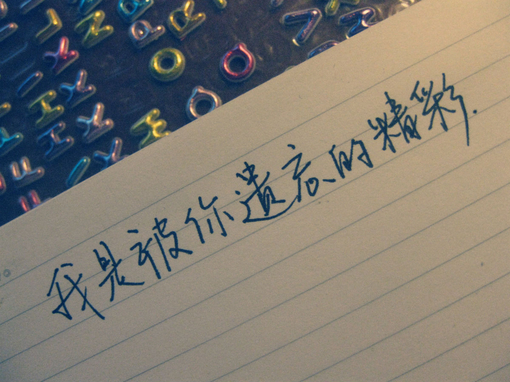 我是被你遗忘的精彩.